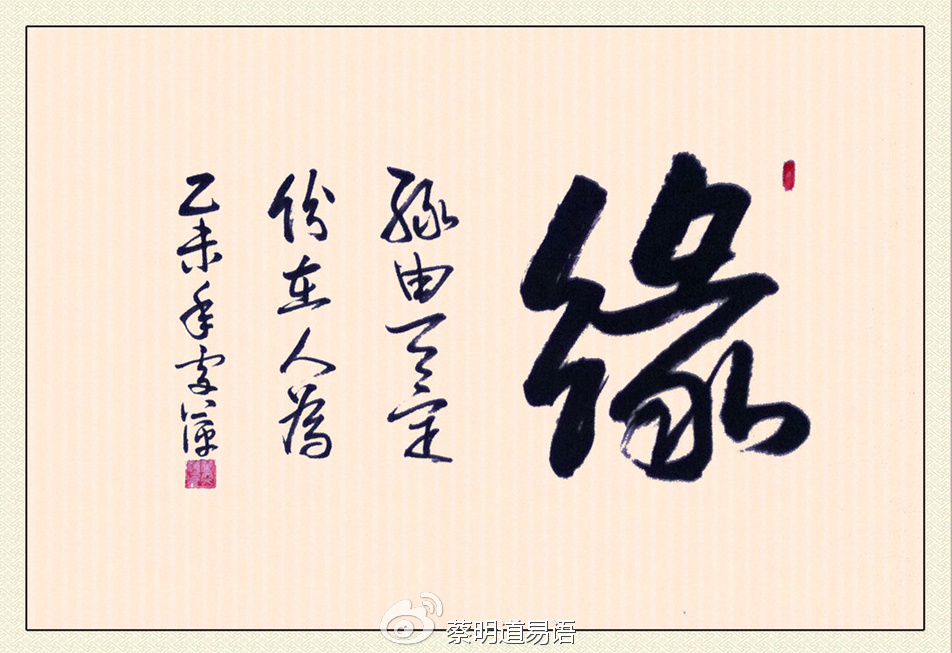 缘
缘由天定
份在人为
乙未年
蔡明道易语